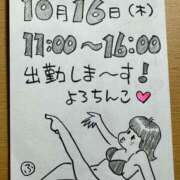 10月16日(木)
11:00〜16:00
出勤しま〜す!
よろちんこ♥
③